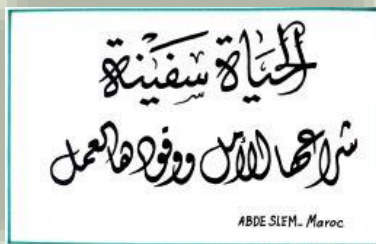 الحَيَاة سَفَيْنة
شراعها الأمل ووقودها العمل
ABDE SLEM_ Maroc